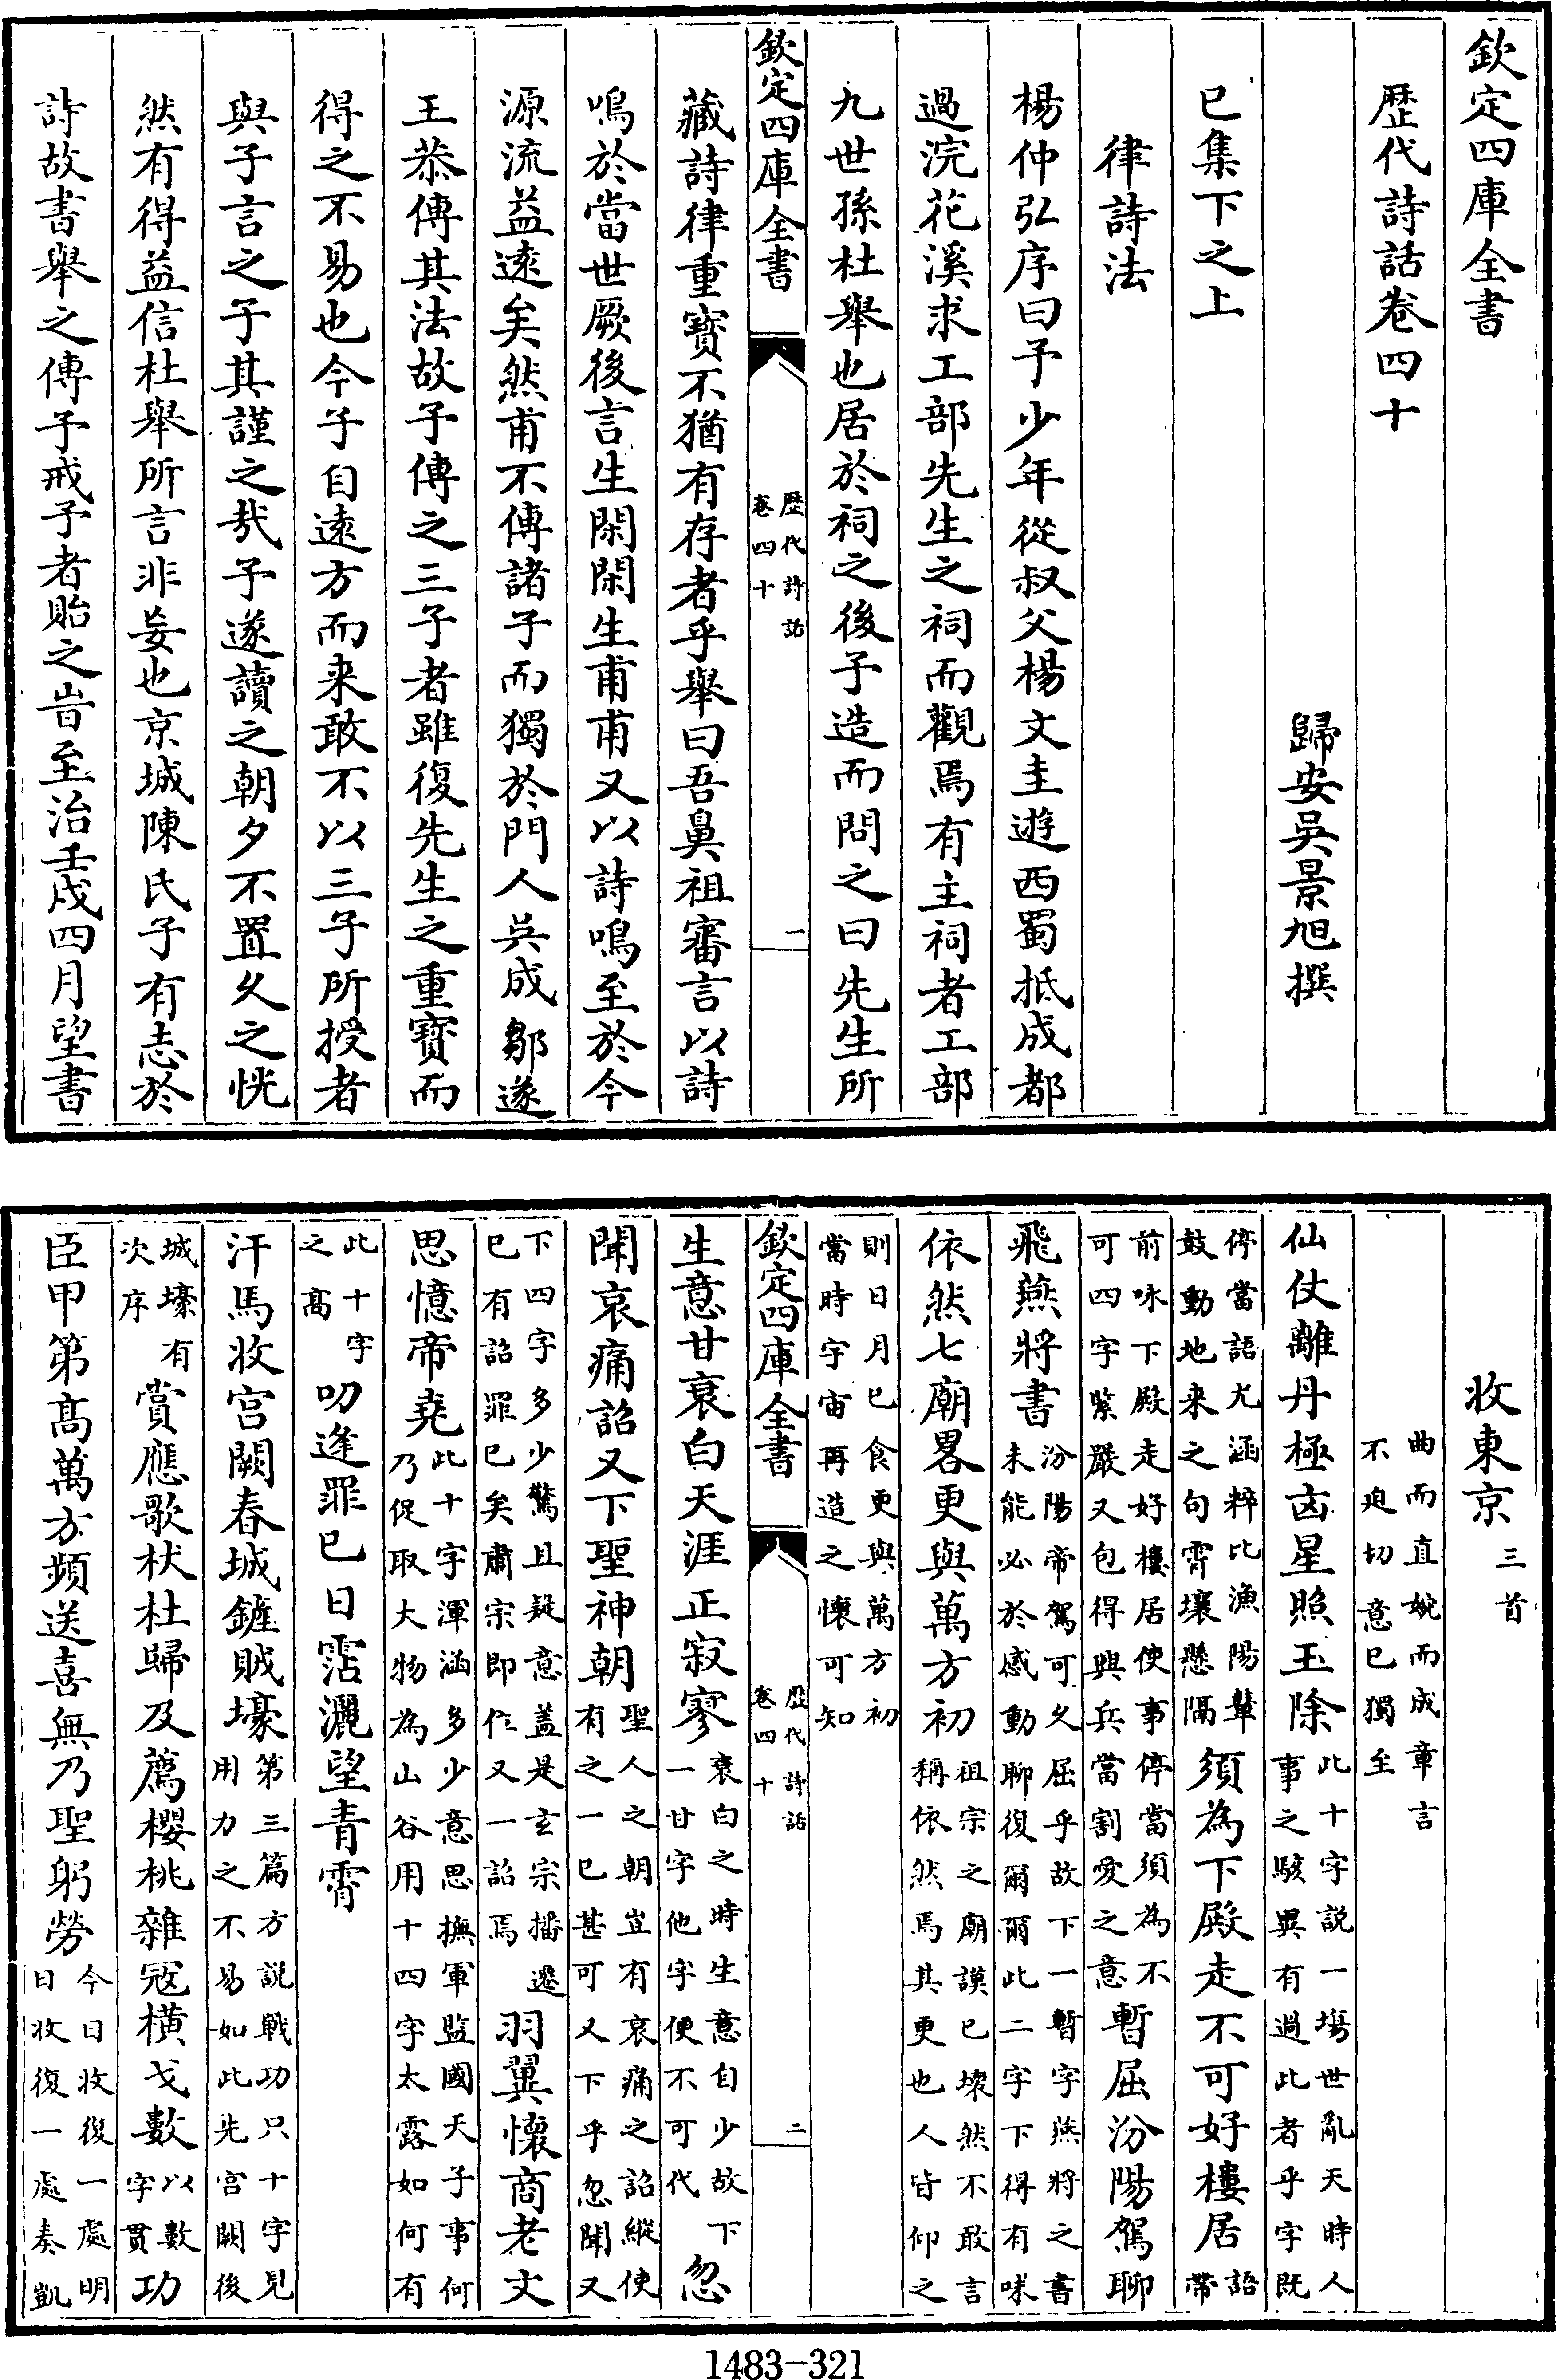 欽定四庫全書
歴代詩話卷四十
歸安吳景旭撰
已集下之上
律詩法
楊仲弘序曰予少年從叔父楊文圭遊西蜀抵成都
過浣花溪求工部先生之祠而觀焉有主祠者工部
九世孫杜舉也居於祠之後予造而問之曰先生所
欽定四庫全書
歴代詩話
卷四十
一
藏詩律重寳不猶有存者乎舉曰吾鼻祖審言以詩
鳴於當世厥後言生閑閑生甫甫又以詩鳴至於今
源流益逺矣然甫不傳諸子而獨於門人吳成鄒遂
王恭傳其法故予傳之三子者雖復先生之重寳而
得之不易也今子自逺方而来敢不以三子所授者
與子言之子其謹之哉予遂讀之朝夕不置久之恍
然有得益信杜舉所言非妄也京城陳氏子有志於
詩故書舉之傳予戒予者貽之旹至治壬戌四月望書
收東京
三首
曲而直婉而成章言
不迫切意已獨至
仙仗離丹極㐫星照玉除
此十字説一塲世亂天時人
事之駭異有過此者乎字既
停當語尤涵粹比漁陽鞞
鼓動地来之句霄壤懸隔
須為下殿走不可好樓居
語
帶
前咏下殿走好樓居使事停當須為不
可四字緊嚴又包得興兵當割愛之意
暫屈汾陽駕聊
飛燕將書
汾陽帝駕可久屈乎故下一暫字燕將之書
未能必於感動聊復爾爾此二字下得有味
依然七廟畧更與萬方初
祖宗之廟謨已壞然不敢言
稱依然焉其更也人皆仰之
則日月已食更與萬方初
當時宇宙再造之懷可知
欽定四庫全書
歴代詩話
卷四十
二
生意甘衰白天涯正寂寥
衰白之時生意自少故下
一甘字他字便不可代
忽
聞哀痛詔又下聖神朝
聖人之朝豈有哀痛之詔縱使
有之一已甚可又下乎忽聞又
下四字多少驚且疑意蓋是玄宗播遷
已有詔罪已矣肅宗即位又一詔焉
羽翼懷商老文
思憶帝堯
此十字渾涵多少意思撫軍監國天子事何
乃促取大物為山谷用十四字太露如何有
此十字
之髙
叨逢罪已日霑灑望青霄
汗馬收宫闕春城鏟賊壕
第三篇方説戰功只十字見
用力之不易如此先宫闕後
城壕有
次序
賞應歌杕杜歸及薦櫻桃雜冦横戈數
以數
字貫
功
臣甲第髙萬方頻送喜無乃聖躬勞
今日收復一處明
日收復一處奏凱
1483-321